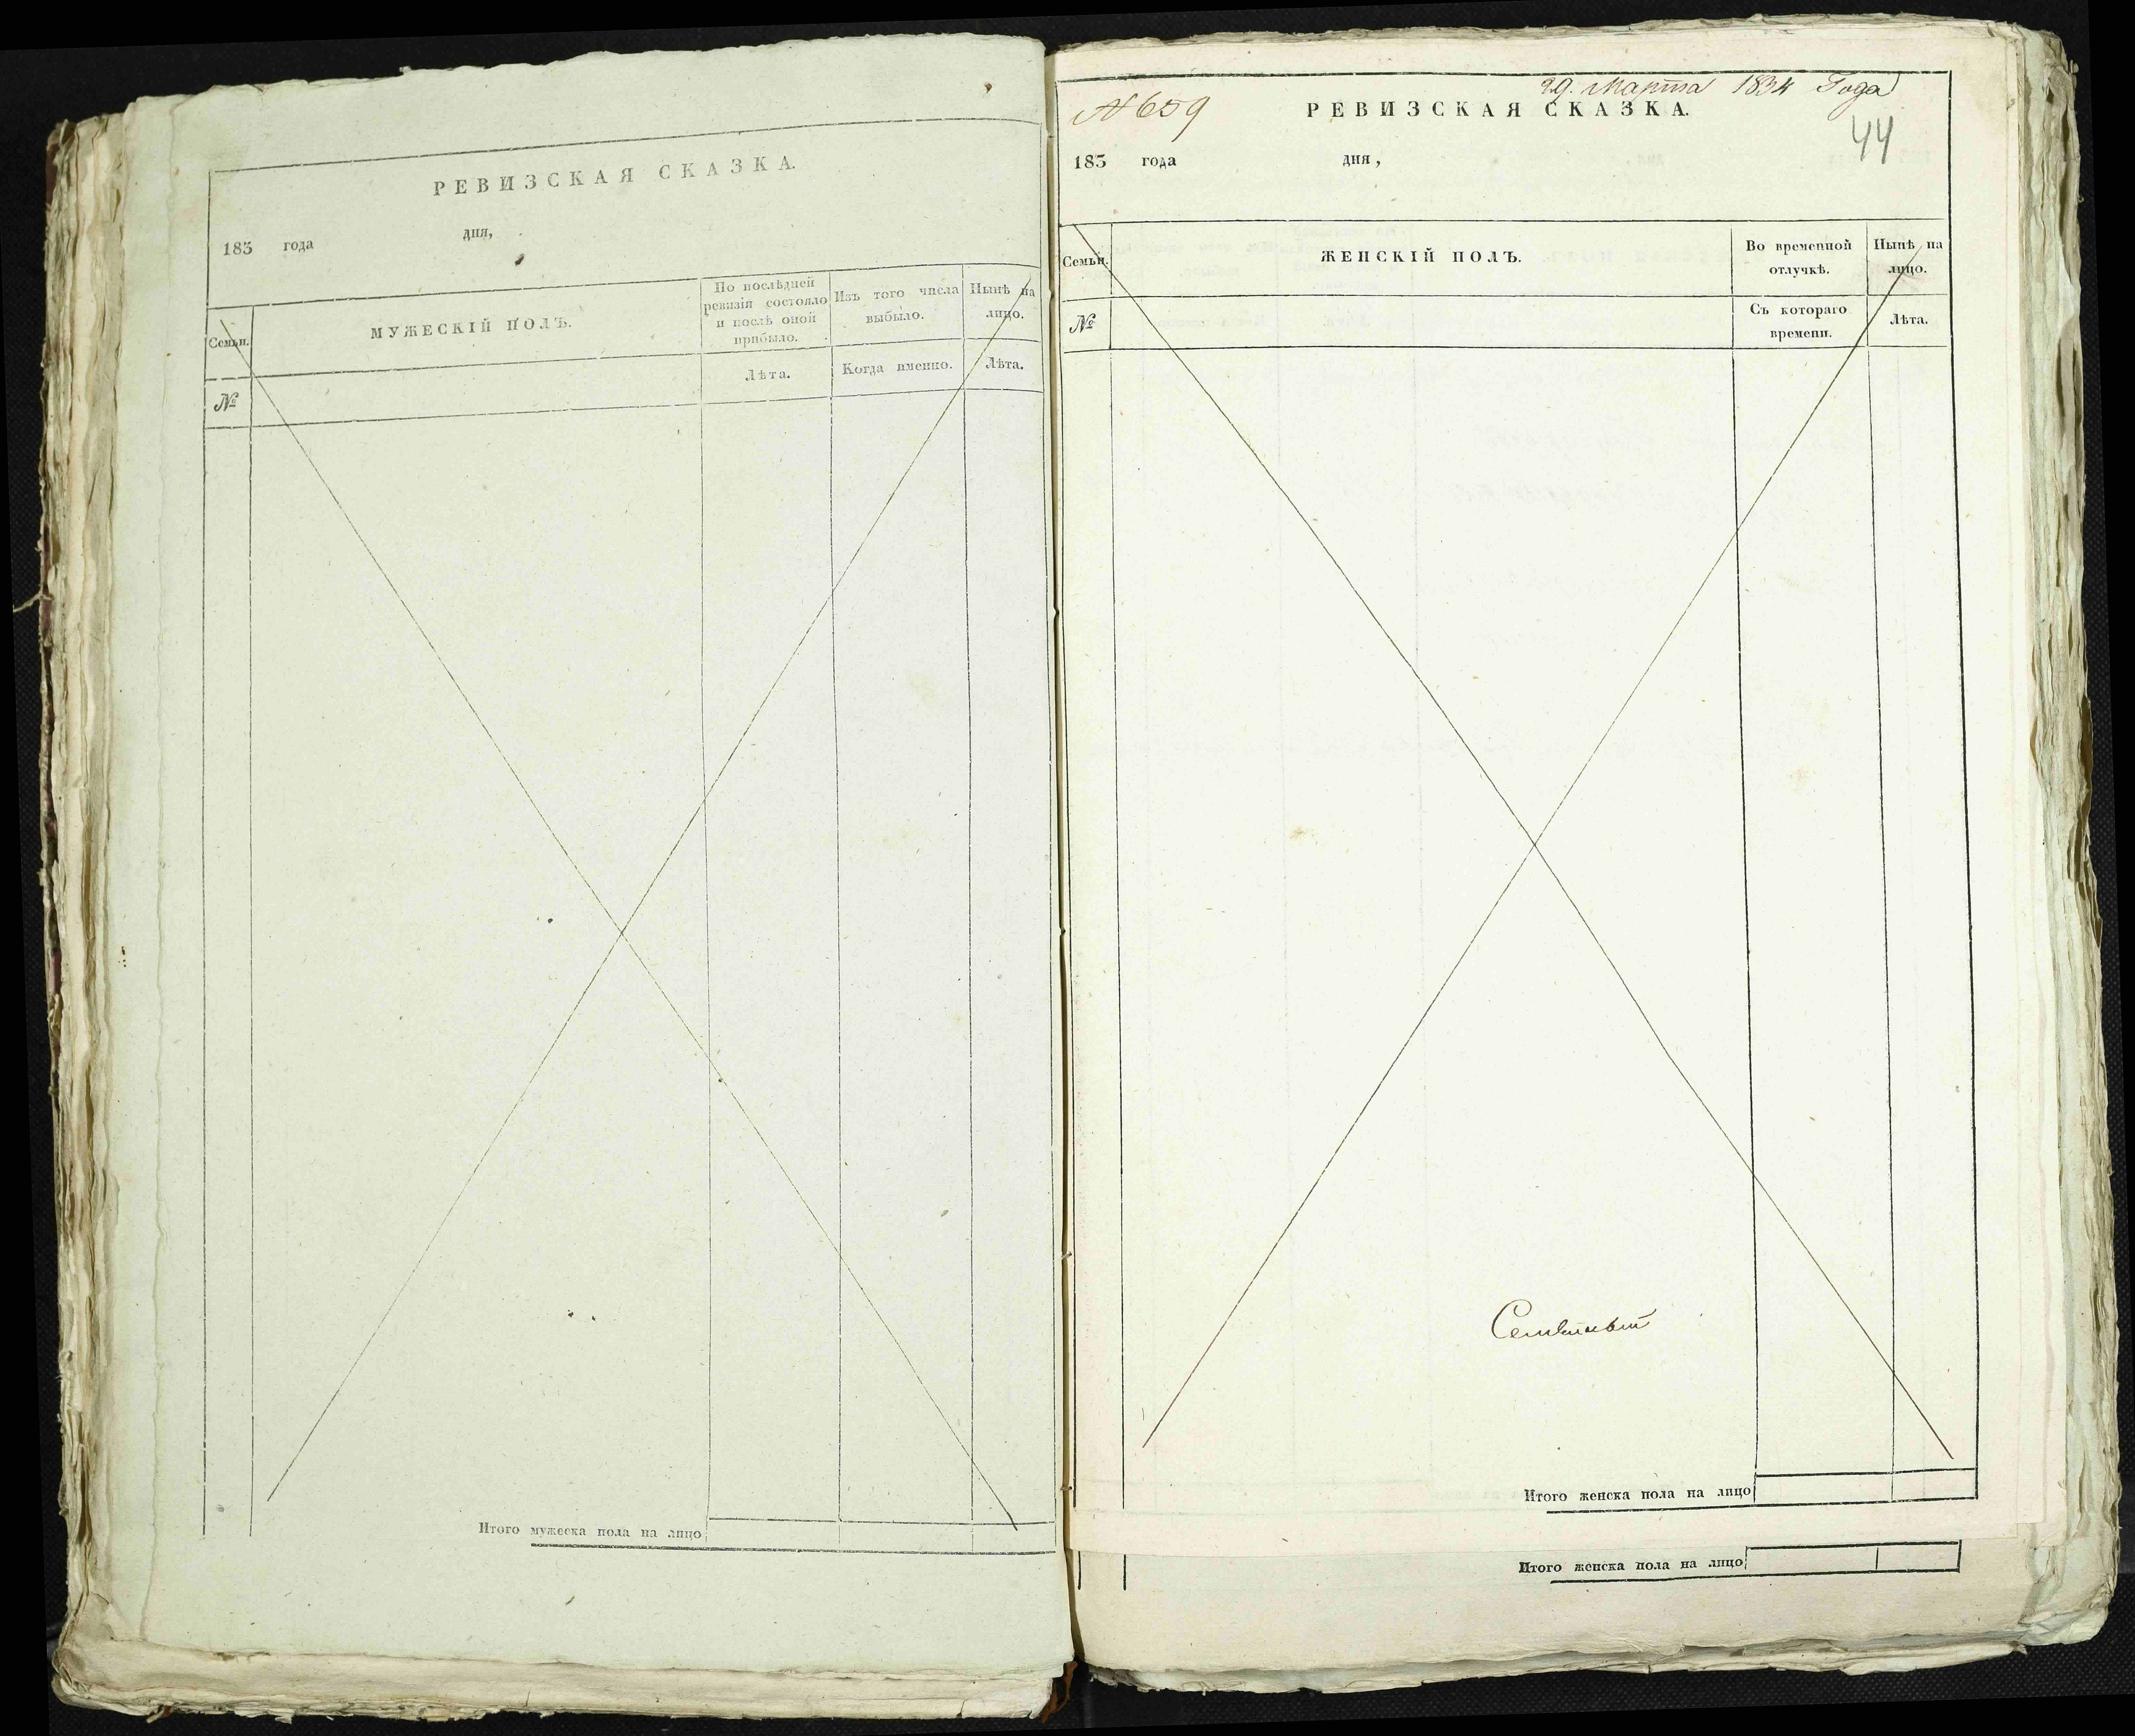 РЕВИЗСКАЯ СКАЗКА.
183 года дня,
Семьи.
МУЖЕСКІЙ ПОЛЪ.
По послѣдней
ревизіи состояло
и послѣ оной
прибыло.
Изъ того числа
выбыло.
Нынѣ на
лицо.
№
Лѣта.
Когда именно.
Лѣта.
Итого мужеска пола на лицо
29. Марта 1834 Года
№ 659
РЕВИЗСКАЯ СКАЗКА.
44
183 года дня,
Семьи.
ЖЕНСКІЙ ПОЛЪ.
Во временной
отлучкѣ.
Нынѣ на
лицо.
№
Съ котораго
времени.
Лѣта.
Итого женска пола на лицо
Итого женска пола на лицо